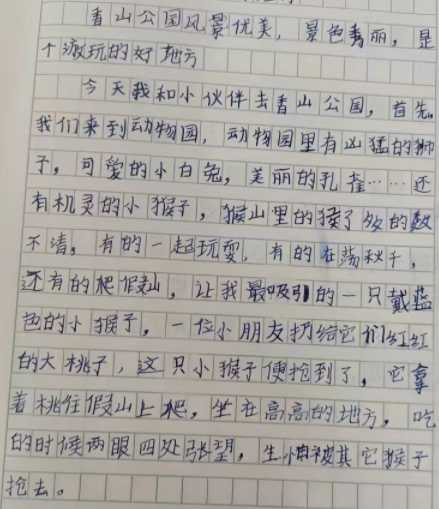 香山公园风景优美，景色秀丽，是
个游玩的好地方
今天我和小伙伴去香山公园，首先
我们来到动物园，动物园里有凶猛的狮
子，可爱的小白兔，美丽的孔雀……还
有机灵的小猴子，猴山里的猴子多的数
不清，有的一起玩耍，有的在荡秋千，
还有的爬假山，让我最吸引的一只戴蓝
色的小猴子，一位小朋友扔给它们红红
的大桃子，这只小猴子便抢到了，它拿
着桃往假山上爬，坐在高高的地方，吃
的时候两眼四处张望，生怕被其它猴子
抢去。